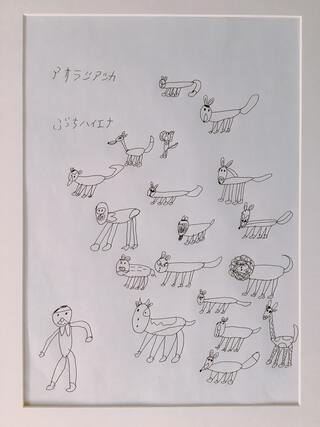 アオランアンカ
ぶちハイエナ